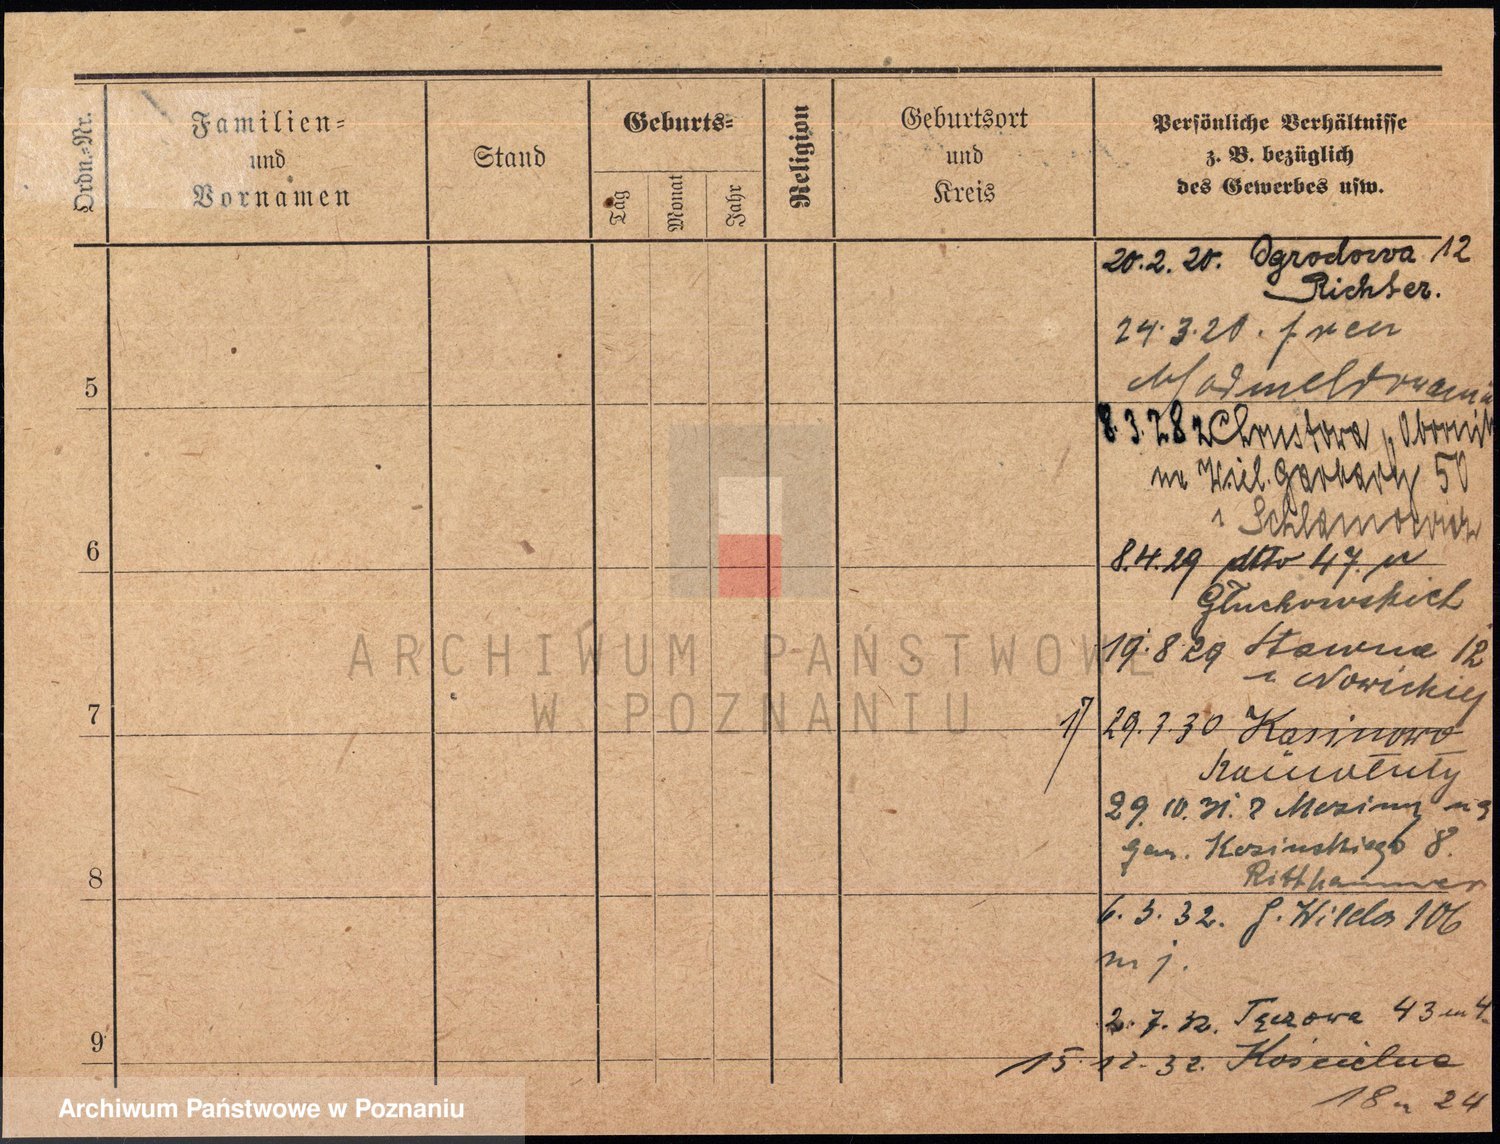 Ordn.-Nr.
Familien-
und
Vornamen
Stand
Geburts-
Tag
Monat
Jahr
Religion
Geburtsort
und
Kreis
Persönliche Verhältnisse
z. B. bezüglich
des Gewerbes usw.
20.2.20. Ogrodowa 12
Richter.
24.3.20.
5
8.3.28 z Chrustowa p. Obornik
na Wiel. Garbary 50
6
8.4.29 dtto 47.
Głuchowskich
19.8.29 Stawna 12
Nowickiej
7
29.3.30
29.10.31. z Mosiny na
gen. Kosinskiego 8.
8
Ritthammer
6.3.32. G. Wilda 106
m j.
2.7.32. Tęczowa 43 m 4
9
15.12.32. Kościelna
18 24
ARCHIWUM PAŃSTWOWE
W POZNANIU
Archiwum Państwowe w Poznaniu